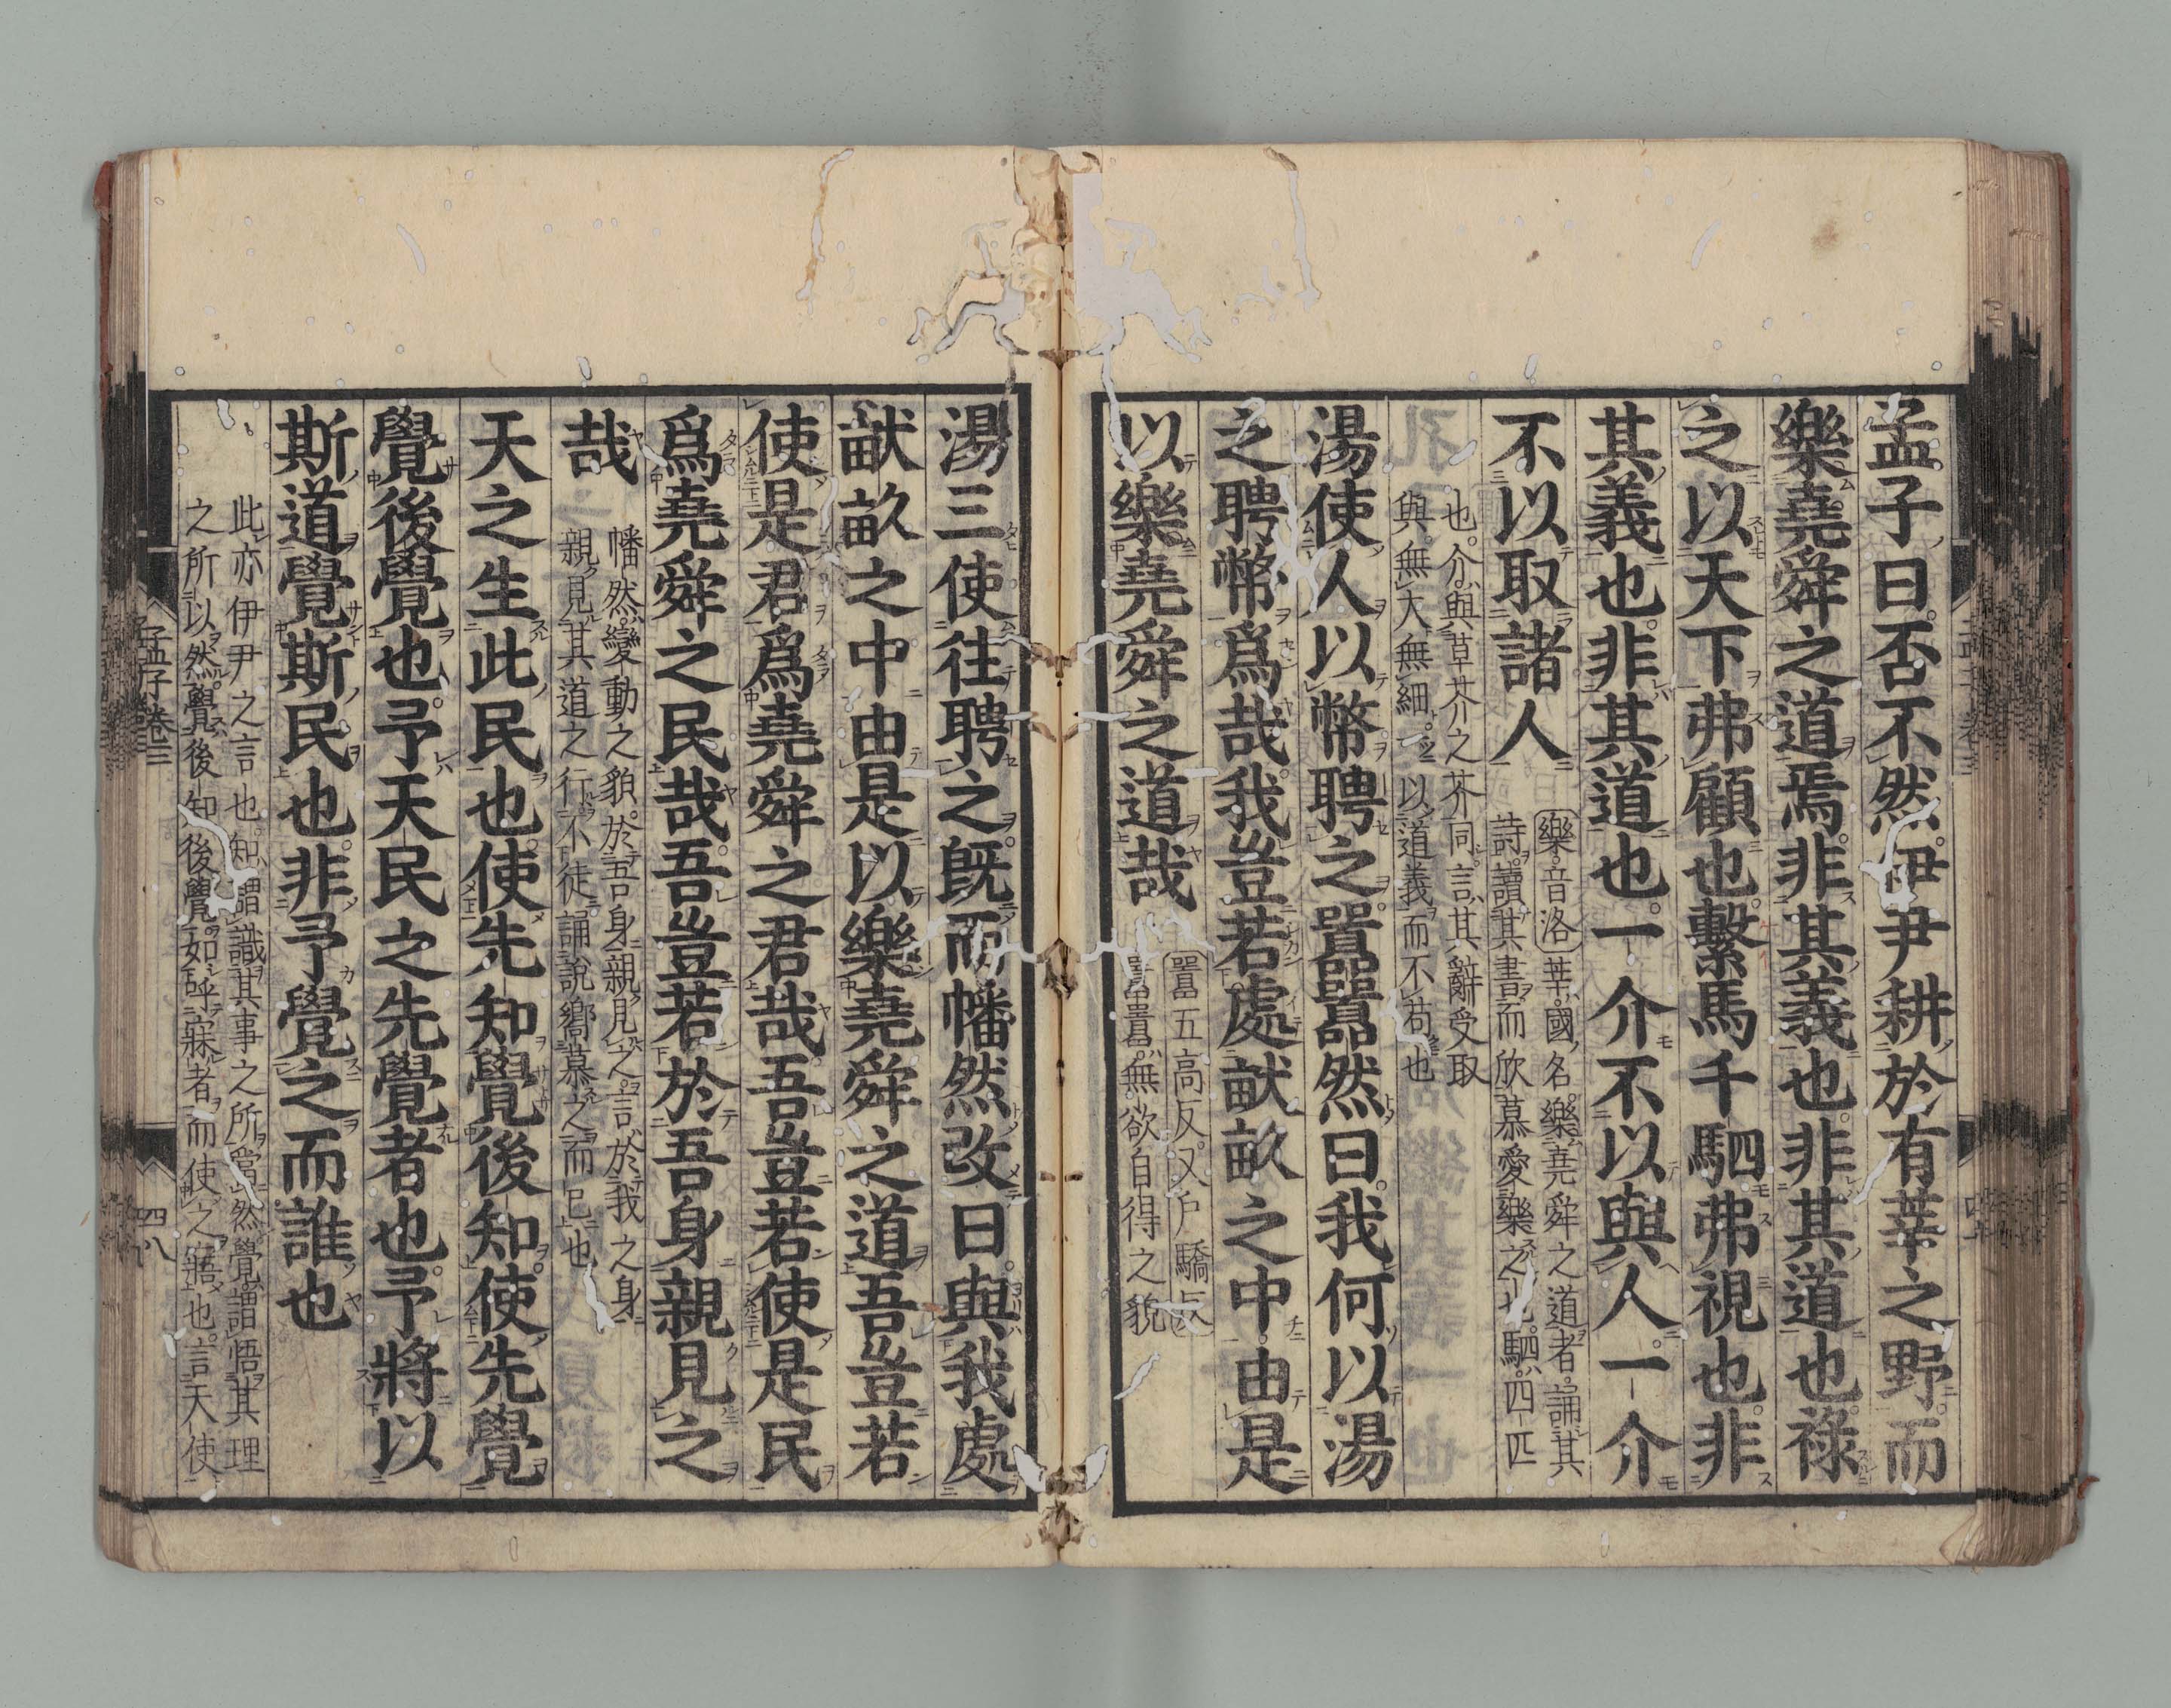 孟子曰否不然伊尹耕於有莘之野而
樂堯舜之道焉非其義也非其道也祿
之以天下弗顧也繫馬千駟弗視也非
其義也非其道也一介不以與人一介
不以取諸人
樂音洛莘國名樂堯舜之道者誦其
詩讀其書而欣慕愛樂之也駟四匹
也介與草芥之芥同言其辭受取
與無大無細一以道義而不苟也
湯使人以幣聘之囂囂然曰我何以湯
之聘幣爲哉我豈若處畎畝之中由是
以樂堯舜之道哉
囂五高反又戶驕反
囂囂無欲自得之貌
湯三使往聘之既而幡然改曰與我處
畎畝之中由是以樂堯舜之道吾豈若
使是君爲堯舜之君哉吾豈若使是民
爲堯舜之民哉吾豈若於吾身親見之
哉
幡然變動之貌於吾身親見之言於我之身
親見其道之行不徒誦說嚮慕之而已也
天之生此民也使先知覺後知使先覺
覺後覺也予天民之先覺者也予將以
斯道覺斯民也非予覺之而誰也
此亦伊尹之言也知謂識其事之所當然覺謂悟其理
之所以然覺後知後覺如呼寐者而使之寤也言天使
孟子卷三
四八